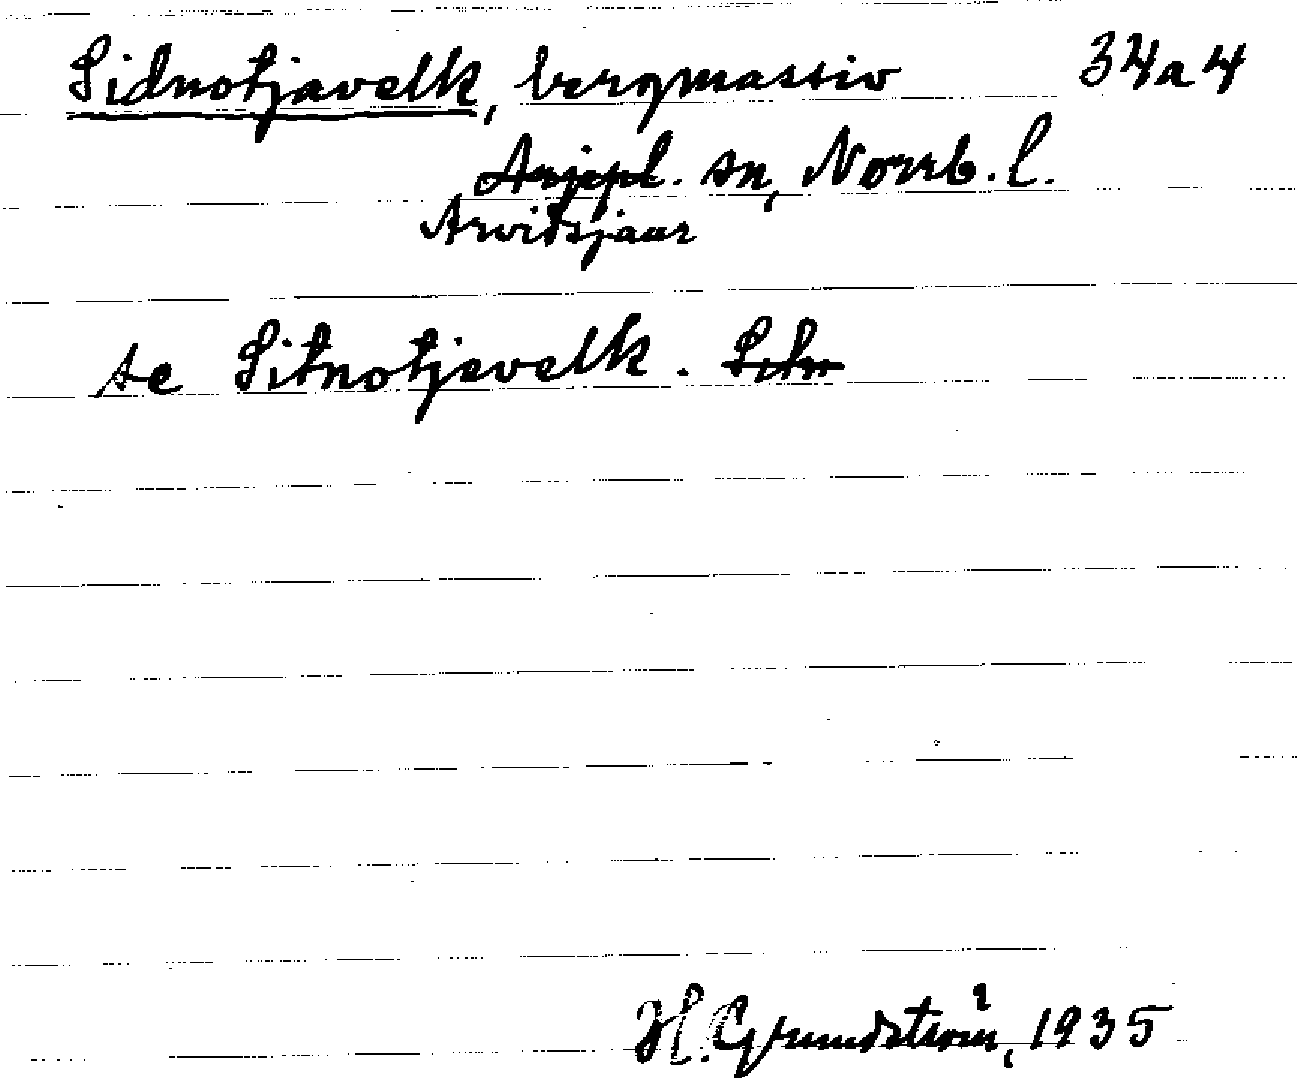 Sidnotjavelk, bergmassiv 34a4
Arjepl. sn, Norrb. l.
Arvidsjaur
se Sitnotjavelk. Sitn
H. Grundström, 1935